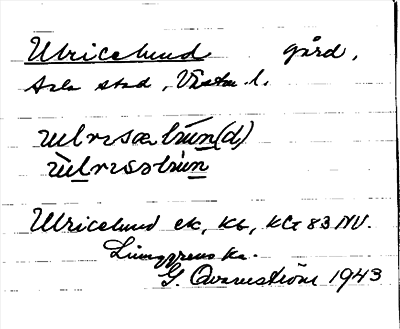 Ulricelund gård,
Sala stad, Västm. l.
ulrisœlun(d)
ulrisəlun
Ulricelund ek, Kb, KG 83 NV.
Ljunggrens ka.
G. Qvarnström 1943